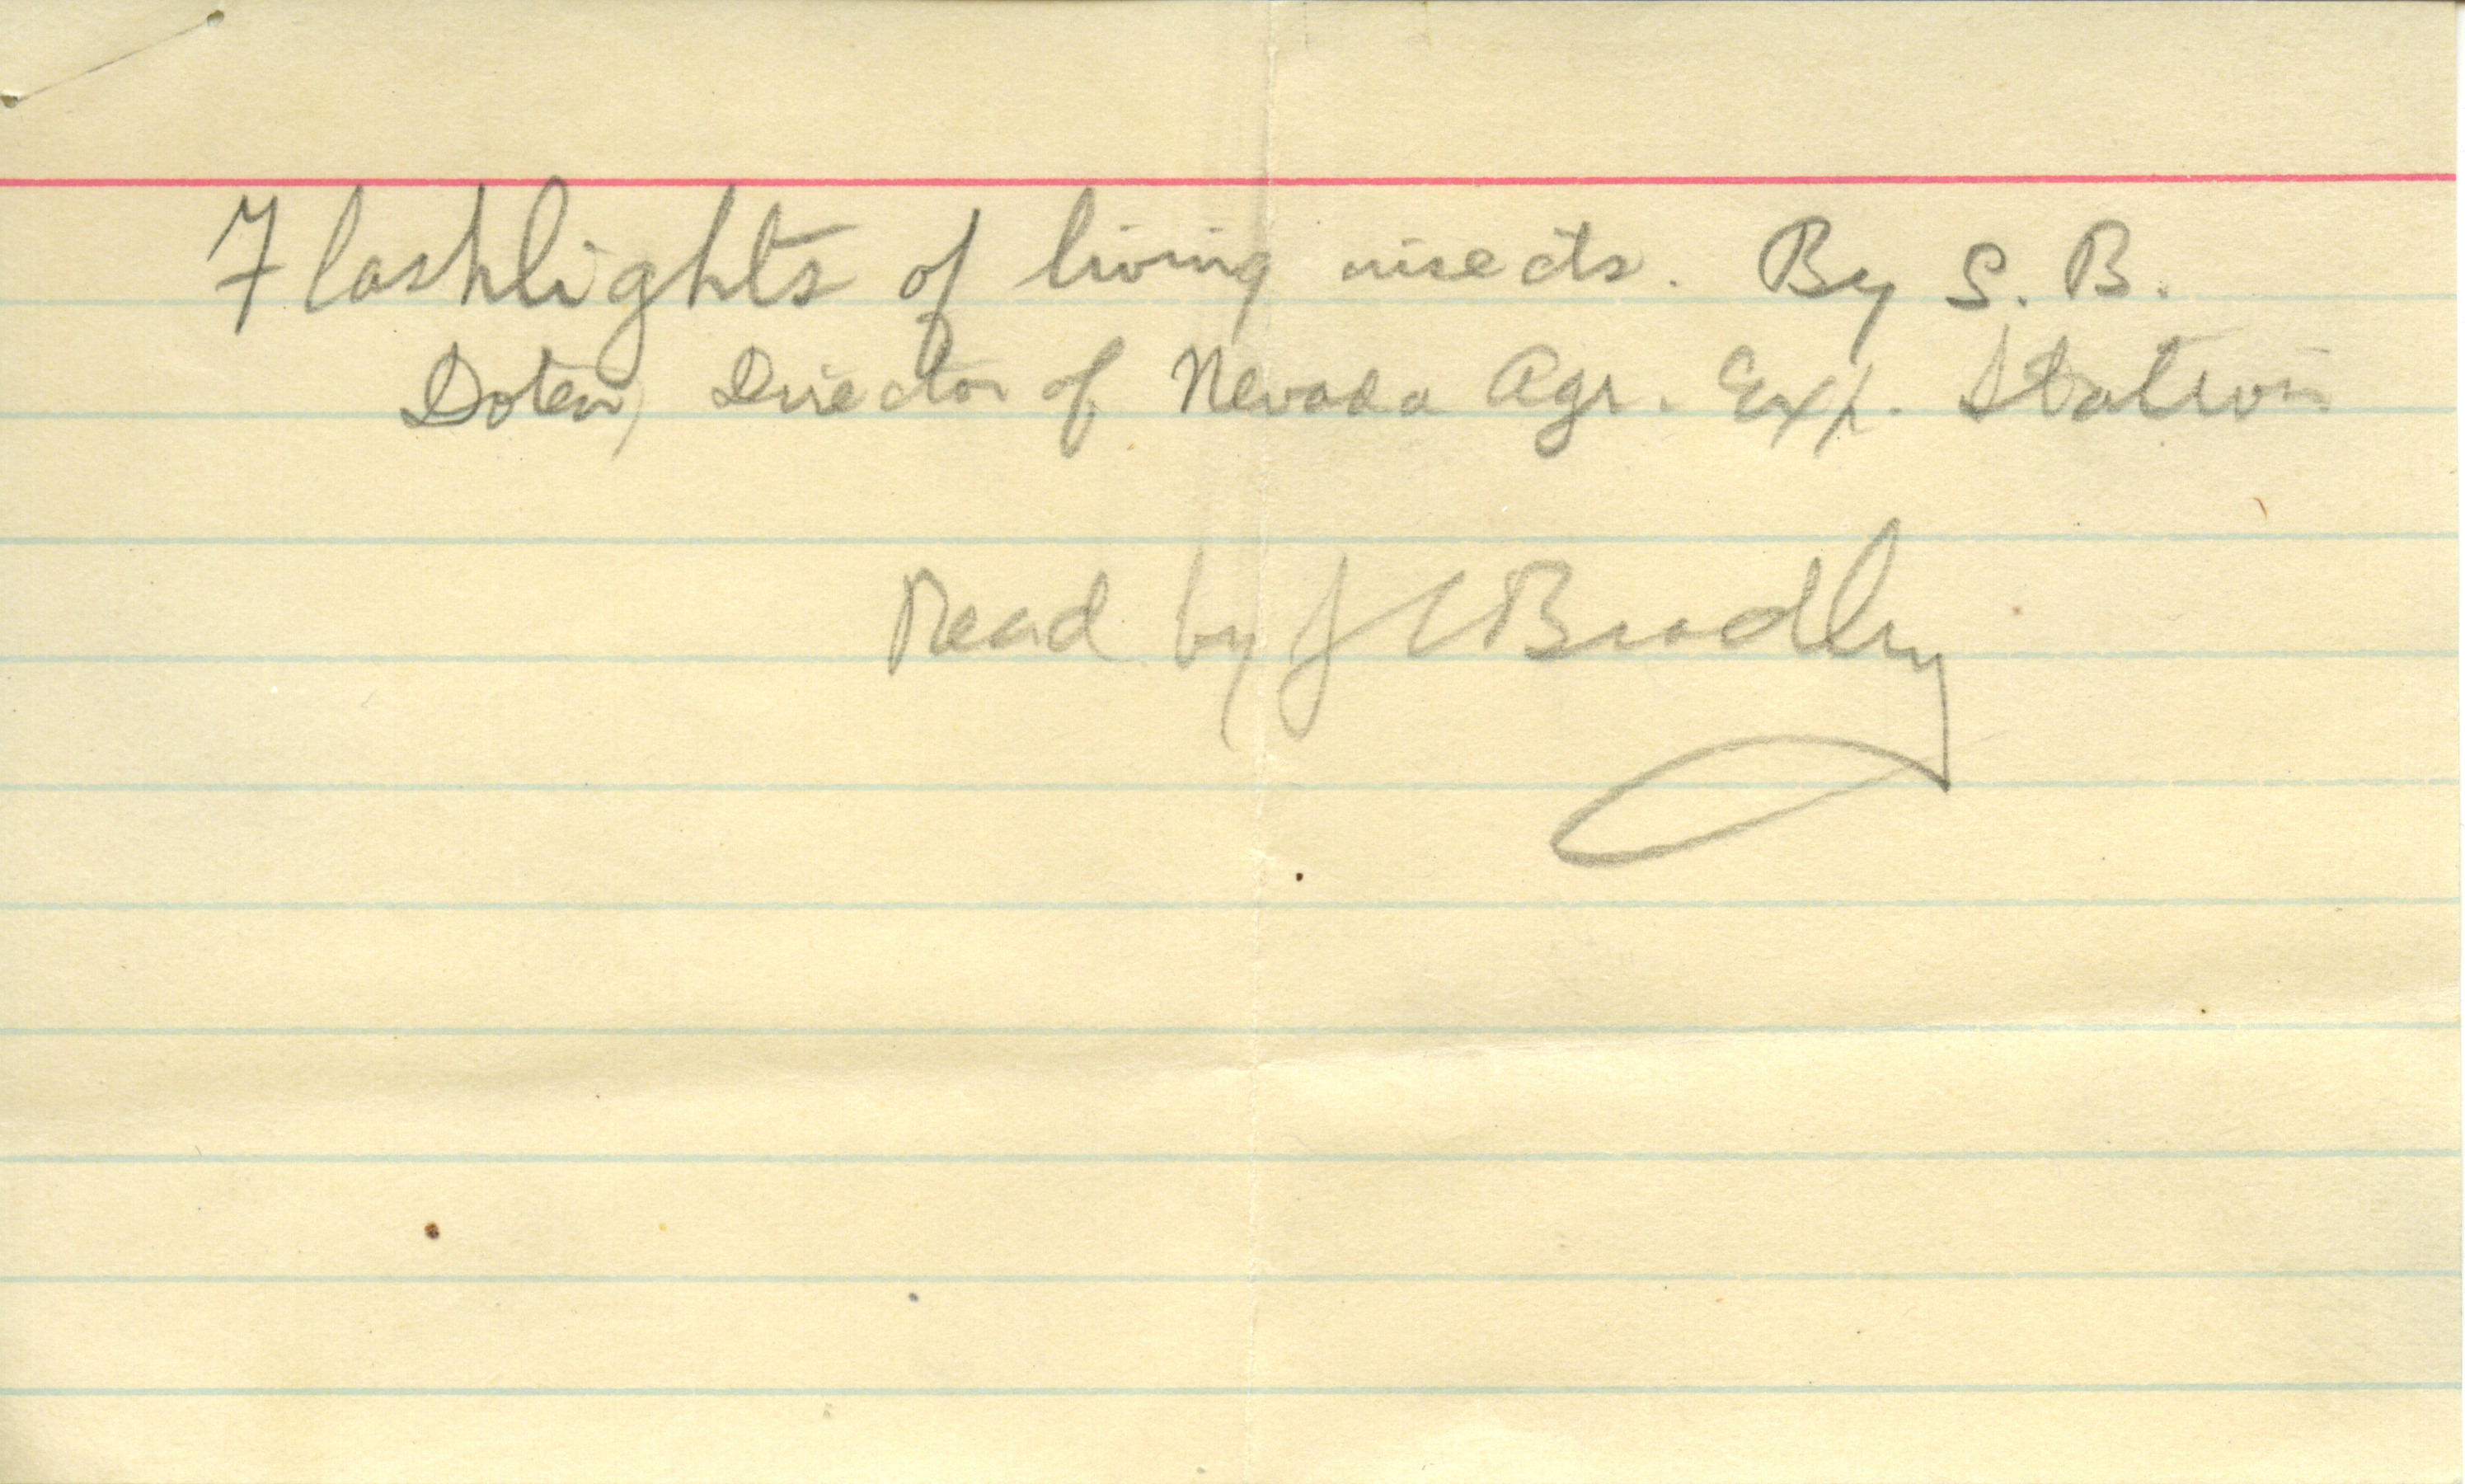 Flashlights of living insects. By S. B.
Doten, Director of Nevada Agr. Exp. Station
Read by J C Bradley